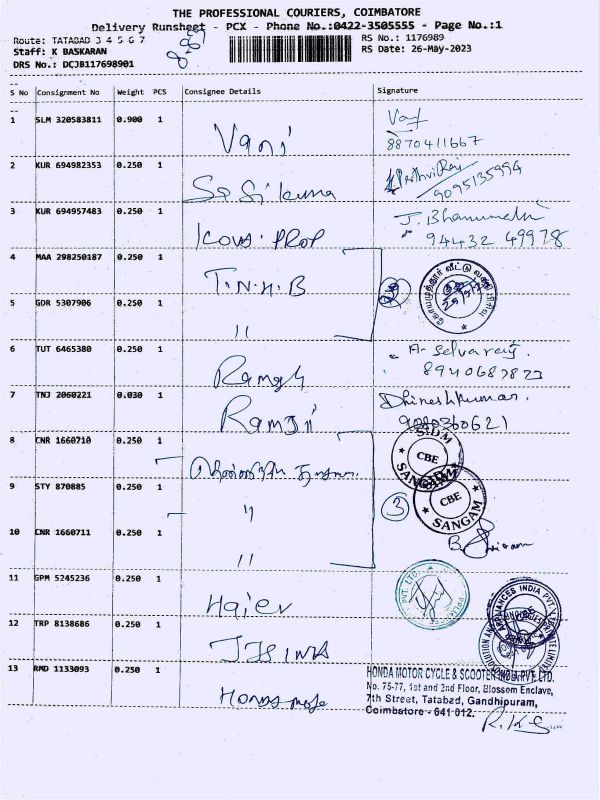 THE PROFESSIONAL COURIERS, COIMBATORE
Delivery Runsheet - PCX - Phone No.:0422-3505555 - Page No.:1
Route: TATABAD 3 4 5 6 7
RS No.: 1176989
Staff: K BASKARAN
RS Date: 26-May-2023
DRS No.: DCJB117698901
S No Consignment No Weight PCS Consignee Details Signature
1 SLM 320583811 0.900 1 Vani
8870411667
2 KUR 694982353 0.250 1
9095135994
3 KUR 694957483 0.250 1 J. Bhanumathi
94432 49978
4 MAA 298250187 0.250 1 T.N.H.B
5 GDR 5307906 0.250 1 "
6 TUT 6465380 0.250 1 Ramesh A. Selvaraj.
7 TNJ 2060221 0.030 1 Ramji Dhineshkumar.
9080360621
8 CNR 1660710 0.250 1
SIDM CBE SANGAM
9 STY 870885 0.250 1 "
3
CBE SANGAM
10 CNR 1660711 0.250 1 "
11 GPM 5245236 0.250 1 Haier
PVT. LTD.
APPLIANCES INDIA PVT.
12 TRP 8138686 0.250 1
13 RMD 1133093 0.250 1
HONDA MOTOR CYCLE & SCOOTER INDIA PVT. LTD.
No. 75-77, 1st and 2nd Floor, Blossom Enclave,
7th Street, Tatabad, Gandhipuram,
Coimbatore - 641 012.